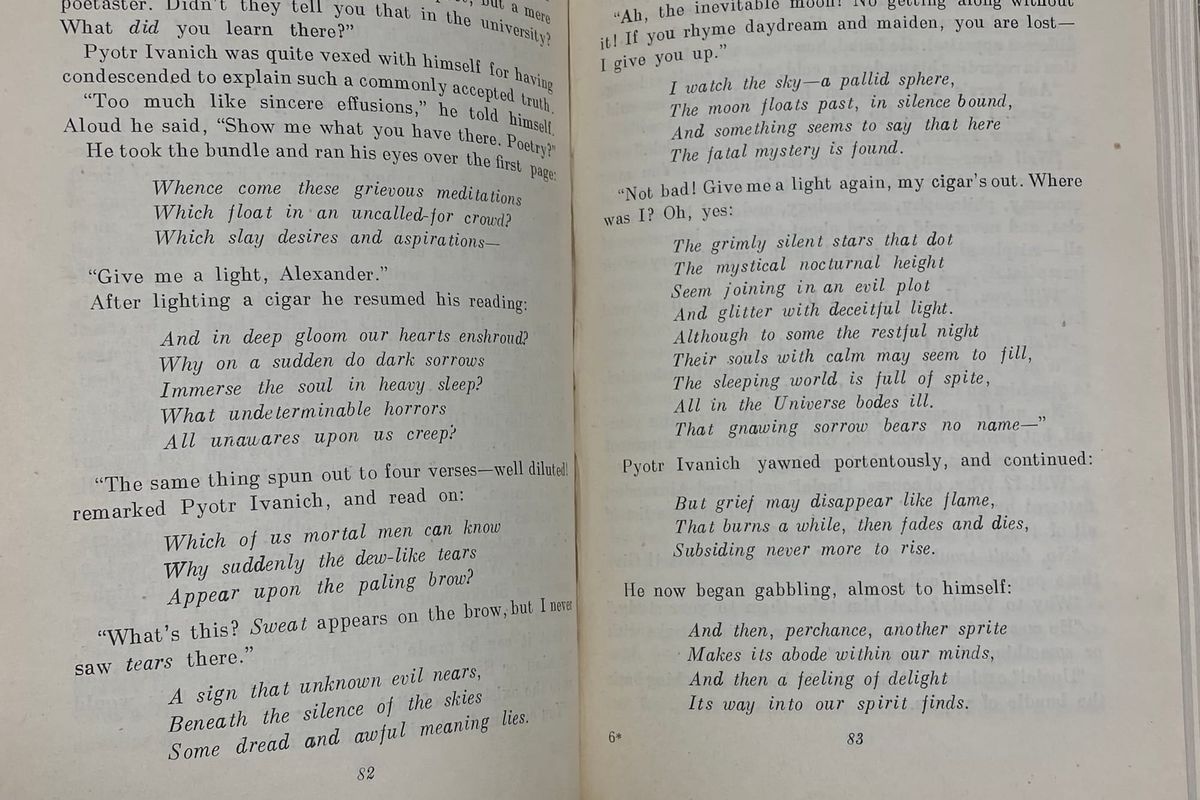 poetaster. Didn't they tell you that in the university?
What did you learn there?”
Pyotr Ivanich was quite vexed with himself for having
condescended to explain such a commonly accepted truth.
“Too much like sincere effusions,” he told himself.
Aloud he said, “Show me what you have there. Poetry?”
He took the bundle and ran his eyes over the first page:
Whence come these grievous meditations
Which float in an uncalled-for crowd?
Which slay desires and aspirations—
“Give me a light, Alexander.”
After lighting a cigar he resumed his reading:
And in deep gloom our hearts enshroud?
Why on a sudden do dark sorrows
Immerse the soul in heavy sleep?
What undeterminable horrors
All unawares upon us creep?
“The same thing spun out to four verses—well diluted!
remarked Pyotr Ivanich, and read on:
Which of us mortal men can know
Why suddenly the dew-like tears
Appear upon the paling brow?
“What's this? Sweat appears on the brow, but I never
saw tears there.”
A sign that unknown evil nears,
Beneath the silence of the skies
Some dread and awful meaning lies.
82
“Ah, the inevitable moon! No getting along without
it! If you rhyme daydream and maiden, you are lost—
I give you up.”
I watch the sky—a pallid sphere,
The moon floats past, in silence bound,
And something seems to say that here
The fatal mystery is found.
“Not bad! Give me a light again, my cigar's out. Where
was I? Oh, yes:
The grimly silent stars that dot
The mystical nocturnal height
Seem joining in an evil plot
And glitter with deceitful light.
Although to some the restful night
Their souls with calm may seem to fill,
The sleeping world is full of spite,
All in the Universe bodes ill.
That gnawing sorrow bears no name—”
Pyotr Ivanich yawned portentously, and continued:
But grief may disappear like flame,
That burns a while, then fades and dies,
Subsiding never more to rise.
He now began gabbling, almost to himself:
And then, perchance, another sprite
Makes its abode within our minds,
And then a feeling of delight
Its way into our spirit finds.
6*
83